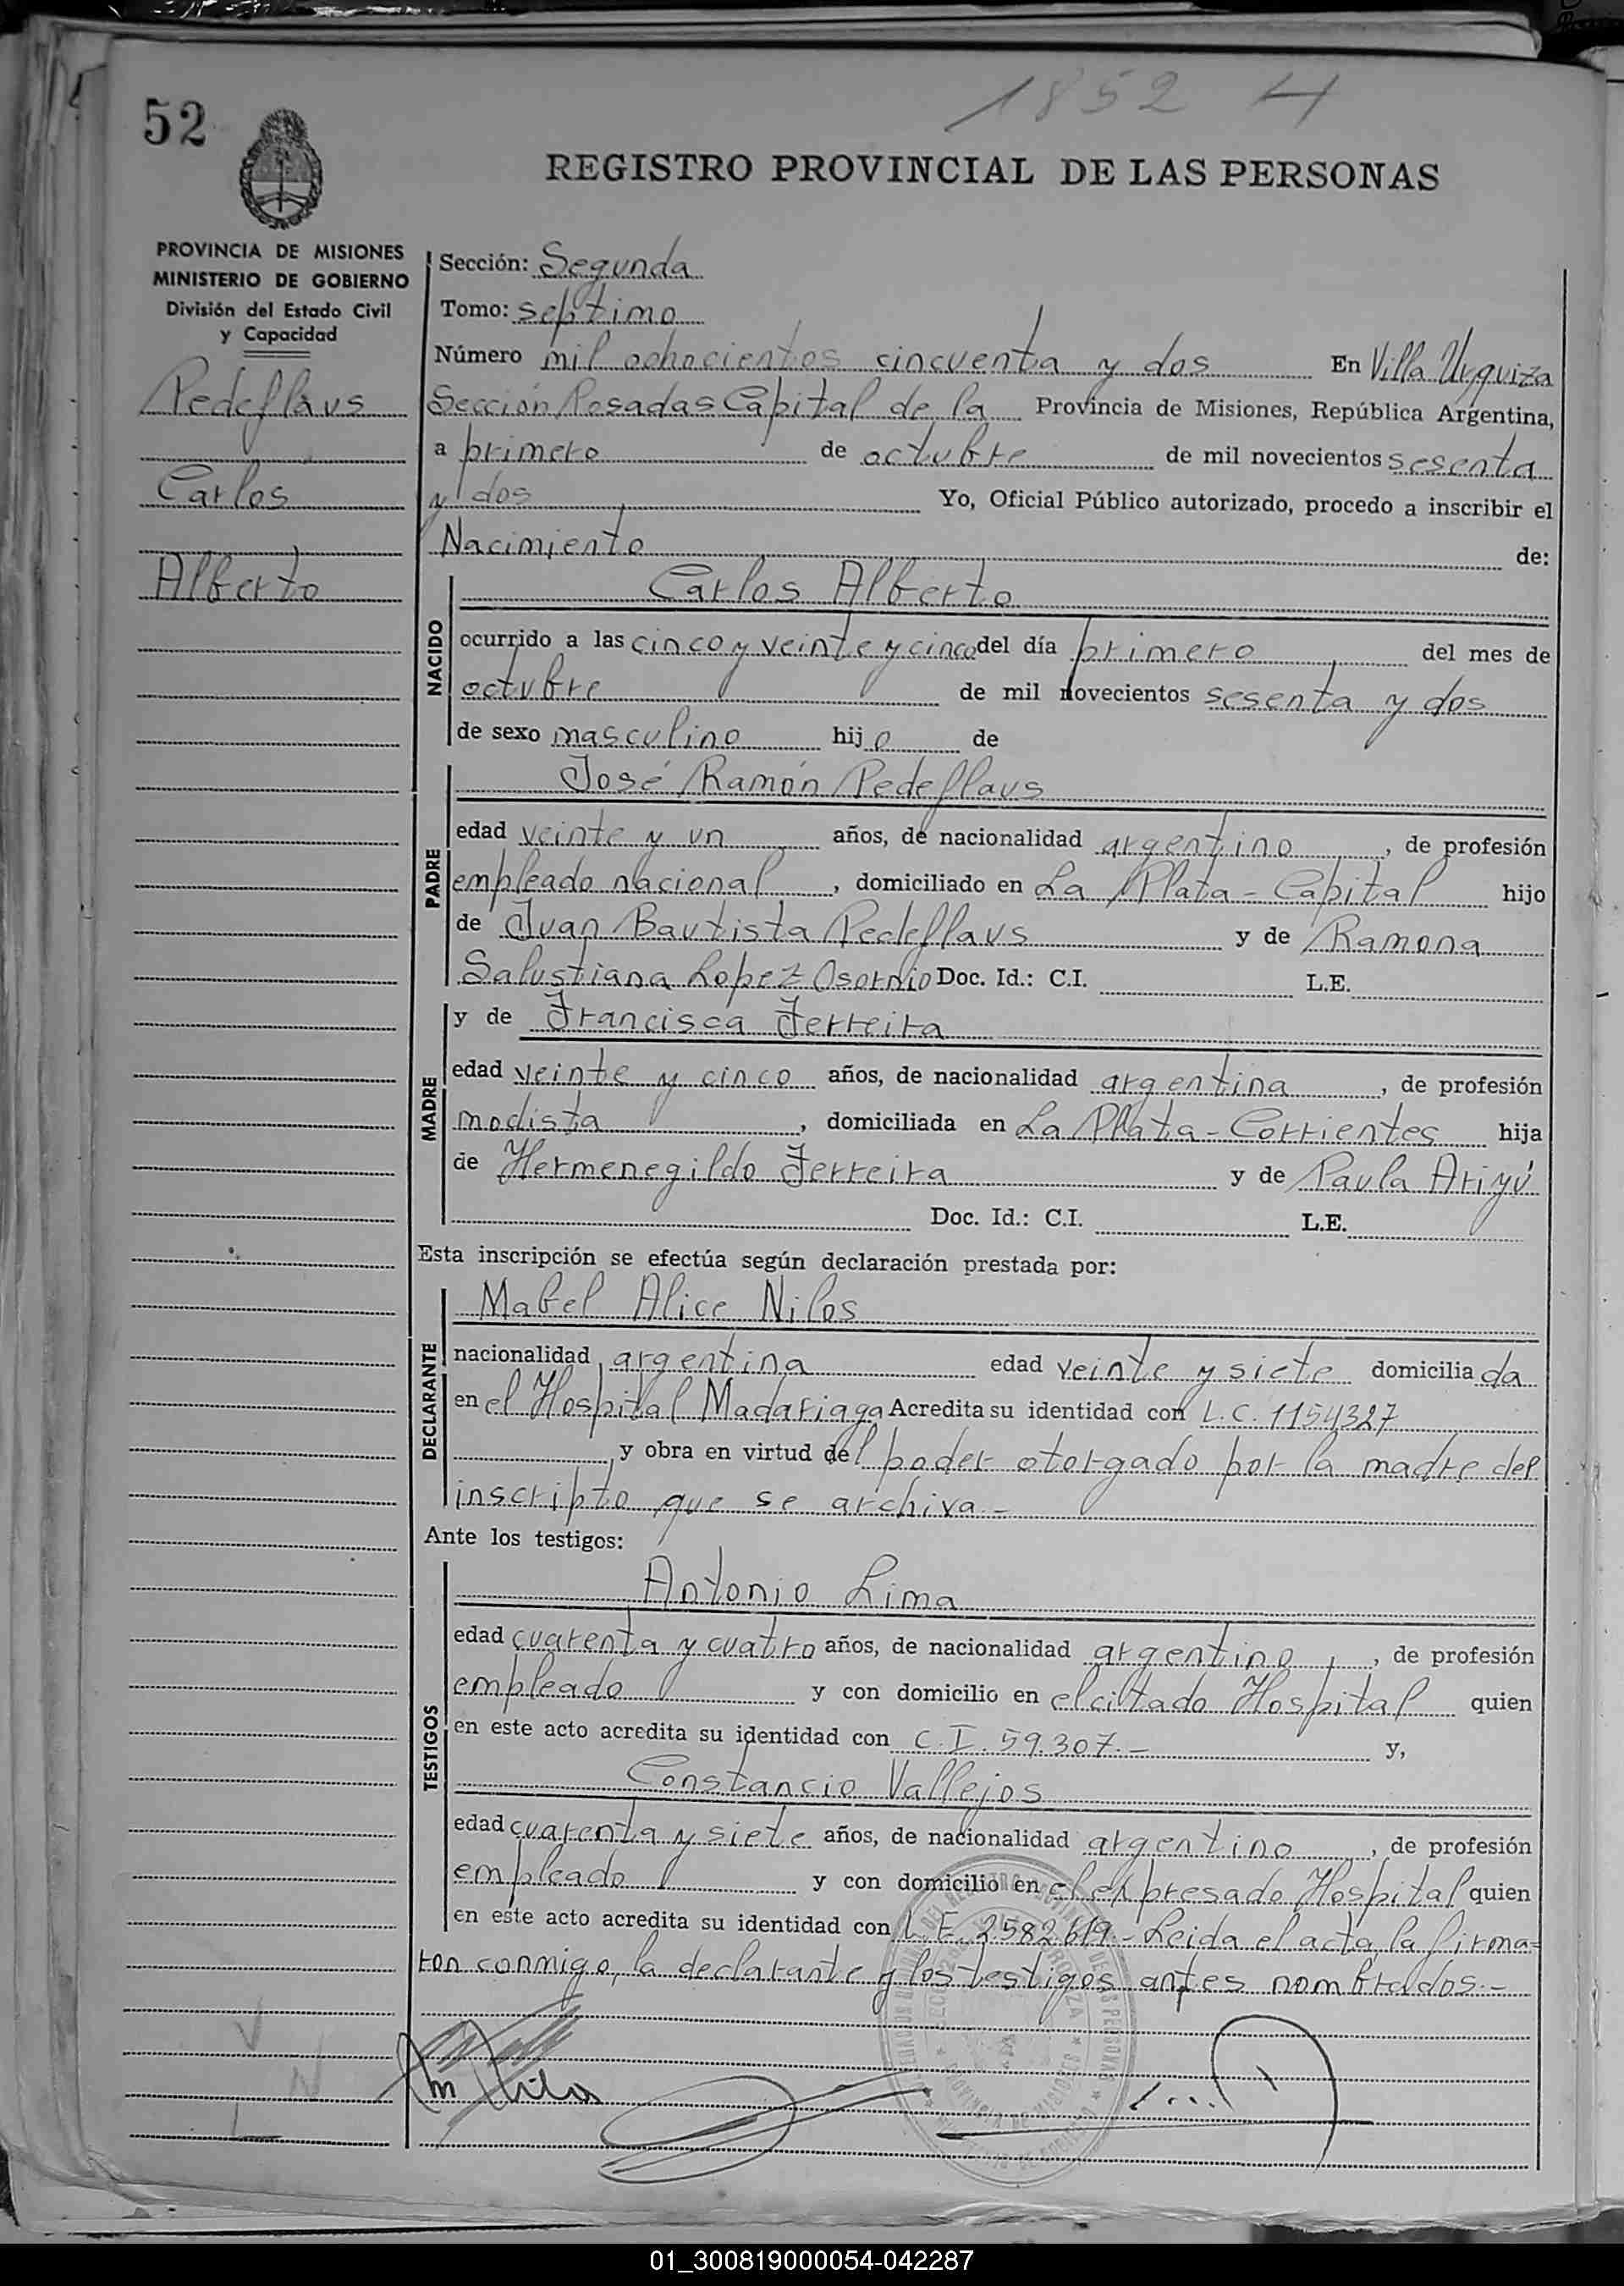 1852 H
52
REGISTRO PROVINCIAL DE LAS PERSONAS
PROVINCIA DE MISIONES
MINISTERIO DE GOBIERNO
División del Estado Civil
y Capacidad
Pedeflaus
Carlos
Alberto
Sección: Segunda
Tomo: septimo
Número mil ochocientos cincuenta y dos En Villa Urquiza
Sección Posadas Capital de la Provincia de Misiones, República Argentina,
a primero de octubre de mil novecientos sesenta
y dos Yo, Oficial Público autorizado, procedo a inscribir el
Nacimiento de:
NACIDO
Carlos Alberto
ocurrido a las cinco y veinte y cinco del día primero del mes de
octubre de mil novecientos sesenta y dos
de sexo masculino hijo de
PADRE
José Ramón Pedeflaus
edad veinte y un años, de nacionalidad argentino, de profesión
empleado nacional, domiciliado en La Plata - Capital hijo
de Juan Bautista Pedeflaus y de Ramona
Salustiana Lopez Osornio Doc. Id.: C.I. L.E.
MADRE
y de Francisca Ferreira
edad veinte y cinco años, de nacionalidad argentina, de profesión
modista, domiciliada en La Plata - Corrientes hija
de Hermenegildo Ferreira y de Paula Ariyú
Doc. Id.: C.I. L.E.
Esta inscripción se efectúa según declaración prestada por:
DECLARANTE
Mabel Alice Nilos
nacionalidad argentina edad veinte y siete domiciliada
en el Hospital Madariaga Acredita su identidad con L.C. 1154327
y obra en virtud del poder otorgado por la madre del
inscripto que se archiva.-
Ante los testigos:
TESTIGOS
Antonio Lima
edad cuarenta y cuatro años, de nacionalidad argentino, de profesión
empleado y con domicilio en el citado Hospital quien
en este acto acredita su identidad con C.I. 59.307.- y,
Constancio Vallejos
edad cuarenta y siete años, de nacionalidad argentino, de profesión
empleado y con domicilio en el expresado Hospital quien
en este acto acredita su identidad con L.E. 2582619.- Leida el acta, la firma=
ron conmigo, la declarante y los testigos antes nombrados.-
01_300819000054-042287